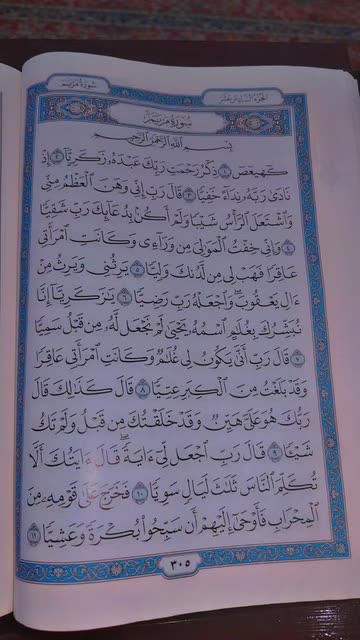 سُورَةُ مَرْيَمَ
الجُزْءُ السَّادِسَ عَشَرَ
سُورَةُ مَرْيَمَ
بِسْمِ ٱللَّهِ ٱلرَّحْمَٰنِ ٱلرَّحِيمِ
كٓهيعٓصٓ ١ ذِكْرُ رَحْمَتِ رَبِّكَ عَبْدَهُۥ زَكَرِيَّآ ٢ إِذْ
نَادَىٰ رَبَّهُۥ نِدَآءً خَفِيًّا ٣ قَالَ رَبِّ إِنِّى وَهَنَ ٱلْعَظْمُ مِنِّى
وَٱشْتَعَلَ ٱلرَّأْسُ شَيْبًا وَلَمْ أَكُنۢ بِدُعَآئِكَ رَبِّ شَقِيًّا
٤ وَإِنِّى خِفْتُ ٱلْمَوَٰلِىَ مِن وَرَآءِى وَكَانَتِ ٱمْرَأَتِى
عَاقِرًا فَهَبْ لِى مِن لَّدُنكَ وَلِيًّا ٥ يَرِثُنِى وَيَرِثُ مِنْ
ءَالِ يَعْقُوبَ ۖ وَٱجْعَلْهُ رَبِّ رَضِيًّا ٦ يَٰزَكَرِيَّآ إِنَّا
نُبَشِّرُكَ بِغُلَٰمٍ ٱسْمُهُۥ يَحْيَىٰ لَمْ نَجْعَل لَّهُۥ مِن قَبْلُ سَمِيًّا
٧ قَالَ رَبِّ أَنَّىٰ يَكُونُ لِى غُلَٰمٌ وَكَانَتِ ٱمْرَأَتِى عَاقِرًا
وَقَدْ بَلَغْتُ مِنَ ٱلْكِبَرِ عِتِيًّا ٨ قَالَ كَذَٰلِكَ قَالَ
رَبُّكَ هُوَ عَلَىَّ هَيِّنٌ وَقَدْ خَلَقْتُكَ مِن قَبْلُ وَلَمْ تَكُ
شَيْـًٔا ٩ قَالَ رَبِّ ٱجْعَل لِّىٓ ءَايَةً ۚ قَالَ ءَايَتُكَ أَلَّا
تُكَلِّمَ ٱلنَّاسَ ثَلَٰثَ لَيَالٍ سَوِيًّا ١٠ فَخَرَجَ عَلَىٰ قَوْمِهِۦ مِنَ
ٱلْمِحْرَابِ فَأَوْحَىٰٓ إِلَيْهِمْ أَن سَبِّحُوا۟ بُكْرَةً وَعَشِيًّا ١١
٣٠٥